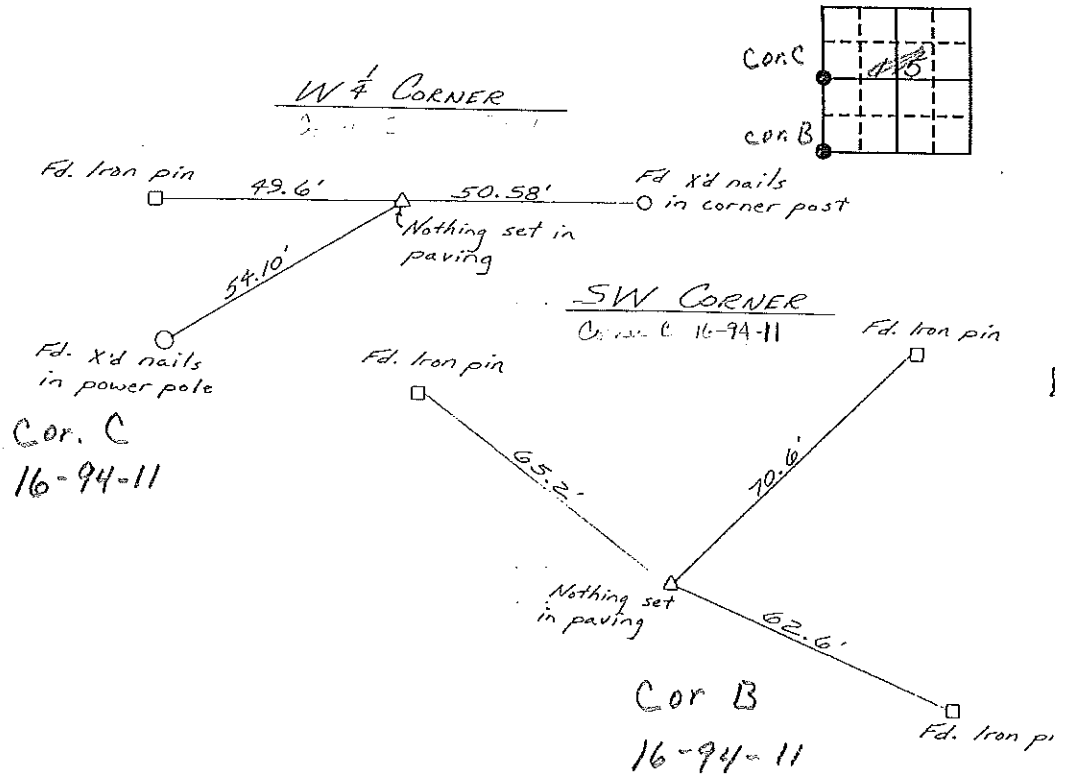 Cor. C
cor. B
W 1/4 CORNER
Fd. Iron pin
49.6'
50.58'
Fd X'd nails
in corner post
Nothing set in
paving
54.10'
Fd. X'd nails
in power pole
Cor. C
16-94-11
SW CORNER
16-94-11
Fd. Iron pin
Fd. Iron pin
65.2'
70.6'
Nothing set
in paving
62.6'
Fd. Iron
Cor B
16-94-11